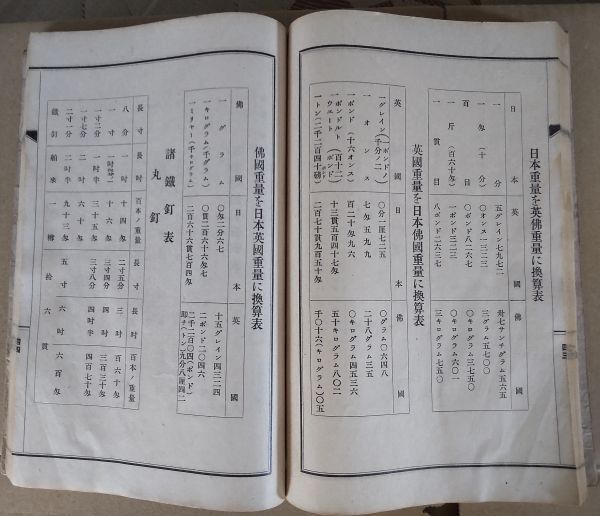 日本重量を英佛重量に換算表
日本
英國
佛國
一分
五グレイン七九七二
卅七サンチグラム五六五
一匁(十分)
〇オンス一三二三
三グラム五七〇〇
百目
〇ポンド八二六七
〇キログラム三七五〇
一斤(百六十匁)
一ポンド三二三
〇キログラム六〇一
一貫目
八ポンド二六三七
三キログラム七五〇
英國重量を日本佛國重量に換算表
英國
日本
佛國
一オンス
七匁五九九
二十八グラム三五
一ポンド(十六オンス)
百二十匁九六
〇キログラム四五三六
十三貫五百四十七匁
五十キログラム八〇二
一トン(二千二百四十磅)
二百七十貫九百五十匁
千〇十六(キログラム)〇五
四三
佛國重量を日本英國重量に換算表
佛國
日本
英國
一グラム
〇匁二分六七
十五グレイン四三二四
一キログラム(千グラム)
〇貫二百六十六匁七
二ポンド二〇四六
二百六十六貫七百四匁
諸鐵釘表
丸釘
長寸
長吋
百本ノ重量
長寸
長吋
百本ノ重量
八分
一吋
十四匁
二寸五分
三吋
百六十匁
一寸
十六匁
三寸四分
四吋
三百三十匁
一寸二分
一吋半
三十五匁
三寸八分
四吋半
四百七十匁
一寸七分
二吋
四十五匁
五寸
六吋
六百匁
二寸一分
二吋半
九十三匁
鐵釘舶來一樽
拾六貫
四四